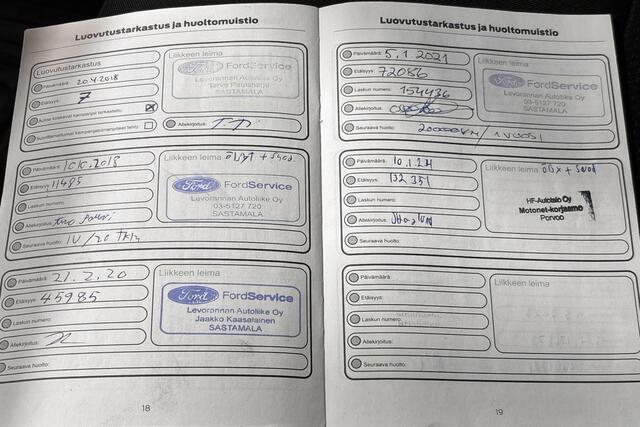 Luovutustarkastus ja huoltomuistio
Luovutustarkastus
Päivämäärä: 20.4.2018
Etäisyys: 7
Autoa koskevat kampanjat tarkastettu:
Suorittamattomat kampanjatoimenpiteet tehty:
Liikkeen leima
Ford FordService
Levorannan Autoliike Oy
SASTAMALA
Allekirjoitus:
Päivämäärä: 10.10.2018
Etäisyys: 11485
Laskun numero:
Allekirjoitus:
Seuraava huolto: 1V/20 tkm
Liikkeen leima
Ford FordService
Levorannan Autoliike Oy
03-5127 720
SASTAMALA
Päivämäärä: 21.2.20
Etäisyys: 45985
Laskun numero:
Allekirjoitus:
Seuraava huolto:
Liikkeen leima
Ford FordService
Levorannan Autoliike Oy
Jaakko Kaasalainen
SASTAMALA
18
Luovutustarkastus ja huoltomuistio
Päivämäärä: 5.1.2021
Etäisyys: 72086
Laskun numero: 154436
Allekirjoitus:
Seuraava huolto: 20000KM / 1 VUOSI
Liikkeen leima
Ford FordService
Levorannan Autoliike Oy
03-5127 720
SASTAMALA
Päivämäärä: 10.1.24
Etäisyys: 132351
Laskun numero:
Allekirjoitus:
Seuraava huolto:
Liikkeen leima
HF-Autotalo Oy
Motonet-korjaamo
Porvoo
Päivämäärä:
Etäisyys:
Laskun numero:
Allekirjoitus:
Seuraava huolto:
Liikkeen leima
19